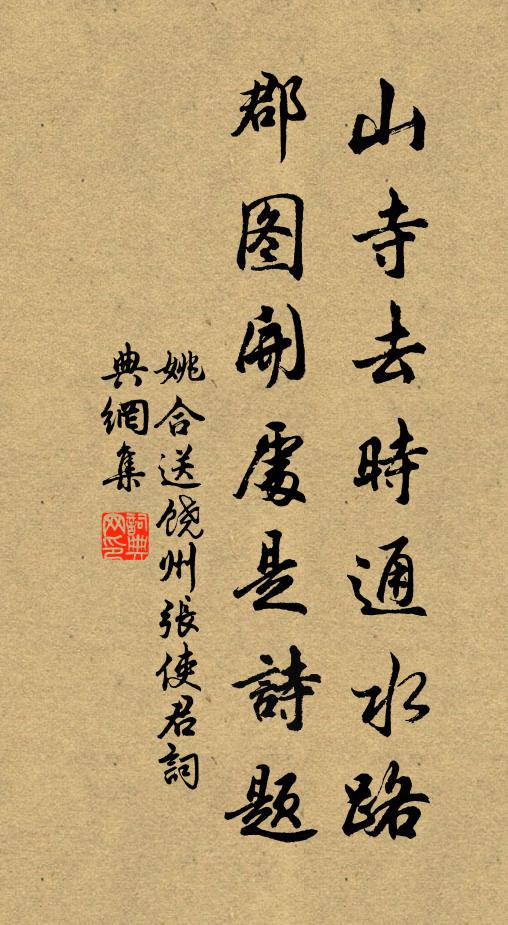 山寺去時通水路
郡图開處是詩题
姚合送饶州張使君詞
典網集
詞典网印